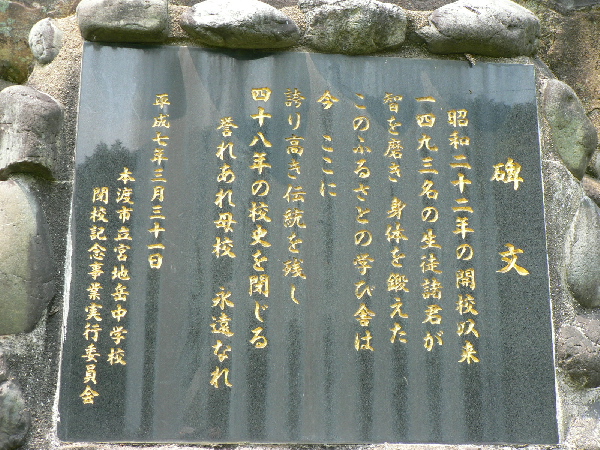 碑文
昭和二十二年の開校以来
一四九三名の生徒諸君が
智を磨き 身体を鍛えた
このふるさとの学び舎は
今 ここに
誇り高き伝統を残し
四十八年の校史を閉じる
誉れあれ母校 永遠なれ
平成七年三月三十一日
本渡市立宮地岳中学校
閉校記念事業実行委員会